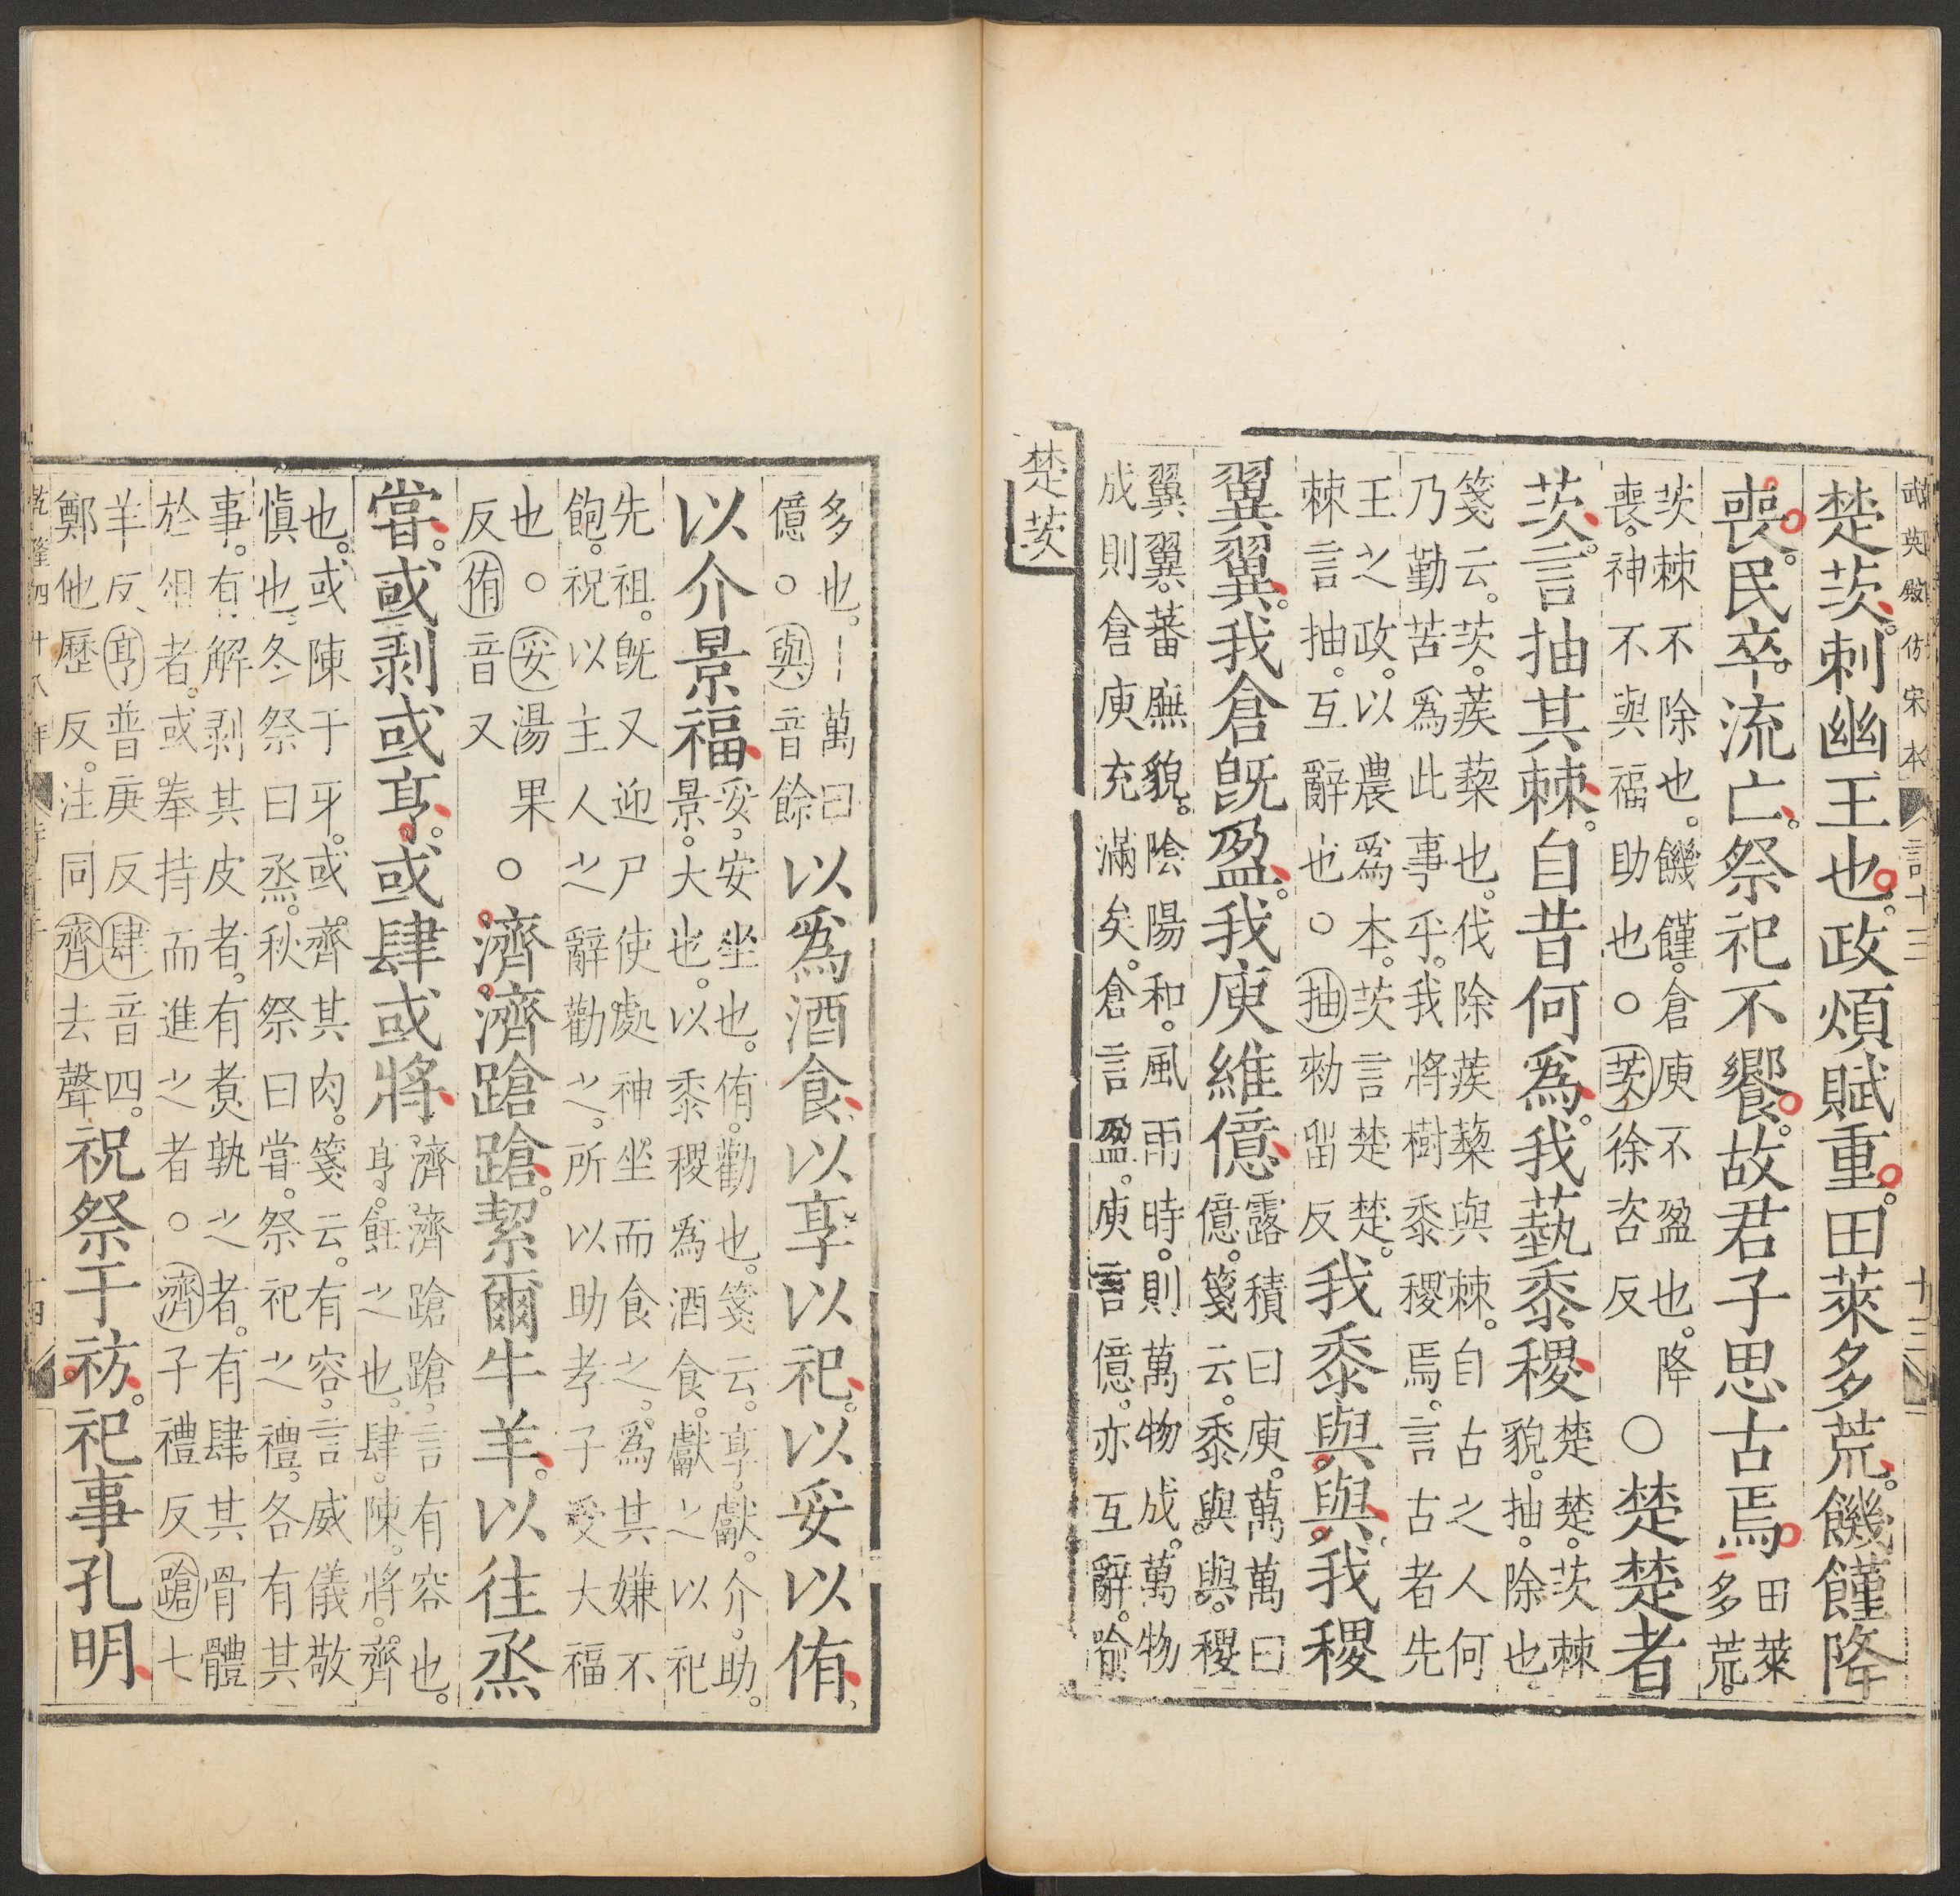 武英殿仿宋本　詩十三　十三
楚茨。刺幽王也。政煩賦重。田萊多荒。饑饉降
喪。民卒。流亡。祭祀不饗。故君子思古焉
田萊
多荒。
茨棘不除也。饑饉。倉庾不盈也。降
喪。神不與福助也○茨徐咨反
○楚楚者
茨。言抽其棘。自昔何爲。我蓺黍稷
楚楚。茨棘
貌。抽。除也
箋云。茨。蒺藜也。伐除蒺藜與棘。自古之人何
乃勤苦爲此事乎。我將樹黍稷焉。言古者先
王之政。以農爲本。茨言楚楚。
棘言抽。互辭也○抽勑留反
我黍與與。我稷
翼翼。我倉旣盈。我庾維億
露積曰庾。萬萬曰
億。箋云。黍與與。稷
翼翼。蕃廡貌。陰陽和。風雨時。則萬物成。萬物
成則倉庾充滿矣。倉言盈。庾言億。亦互辭。喻
楚茨
多也。十萬曰
億○與音餘
以爲酒食。以享以祀。以妥以侑。
以介景福
妥。安坐也。侑。勸也。箋云。享。獻。介。助。
景。大也。以黍稷爲酒食。獻之以祀
先祖。旣又迎尸使處神坐而食之。爲其嫌不
飽。祝以主人之辭勸之。所以助孝子受大福
也○妥湯果
反侑音又
○濟濟蹌蹌。絜爾牛羊。以往烝
嘗。或剥或亨。或肆或將
濟濟蹌蹌。言有容也。
亨。飪之也。肆。陳。將。齊
也。或陳于牙。或齊其肉。箋云。有容。言威儀敬
愼也。冬祭曰烝。秋祭曰嘗。祭祀之禮。各有其
事。有解剥其皮者。有煑孰之者。有肆其骨體
於俎者。或奉持而進之者○濟子禮反蹌七
羊反亨普庚反肆音四。
鄭他歷反。注同齊去聲
祝祭于祊。祀事孔明
乾隆四十八年　十四